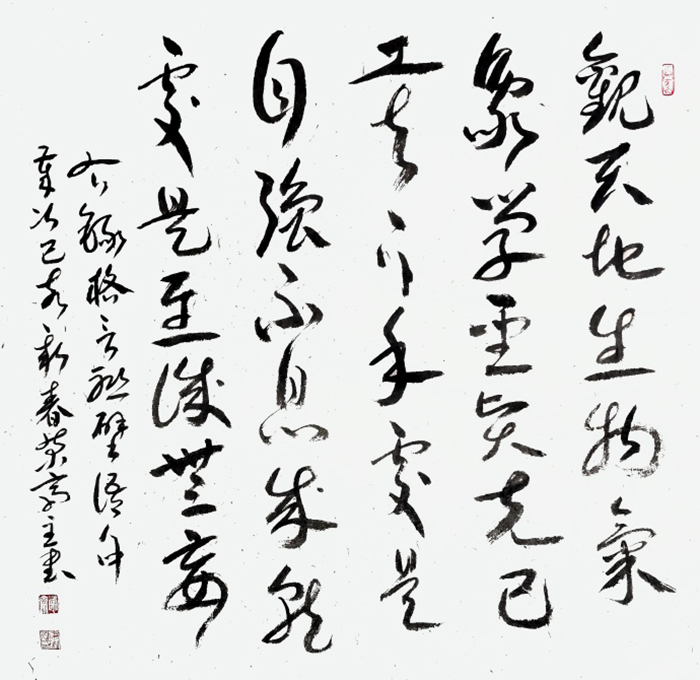 觀天地生物氣
象学聖賢克己
工夫下手處是
自強不息成就
處是至誠無妄
右録格言聯璧語句
歲次己亥新春